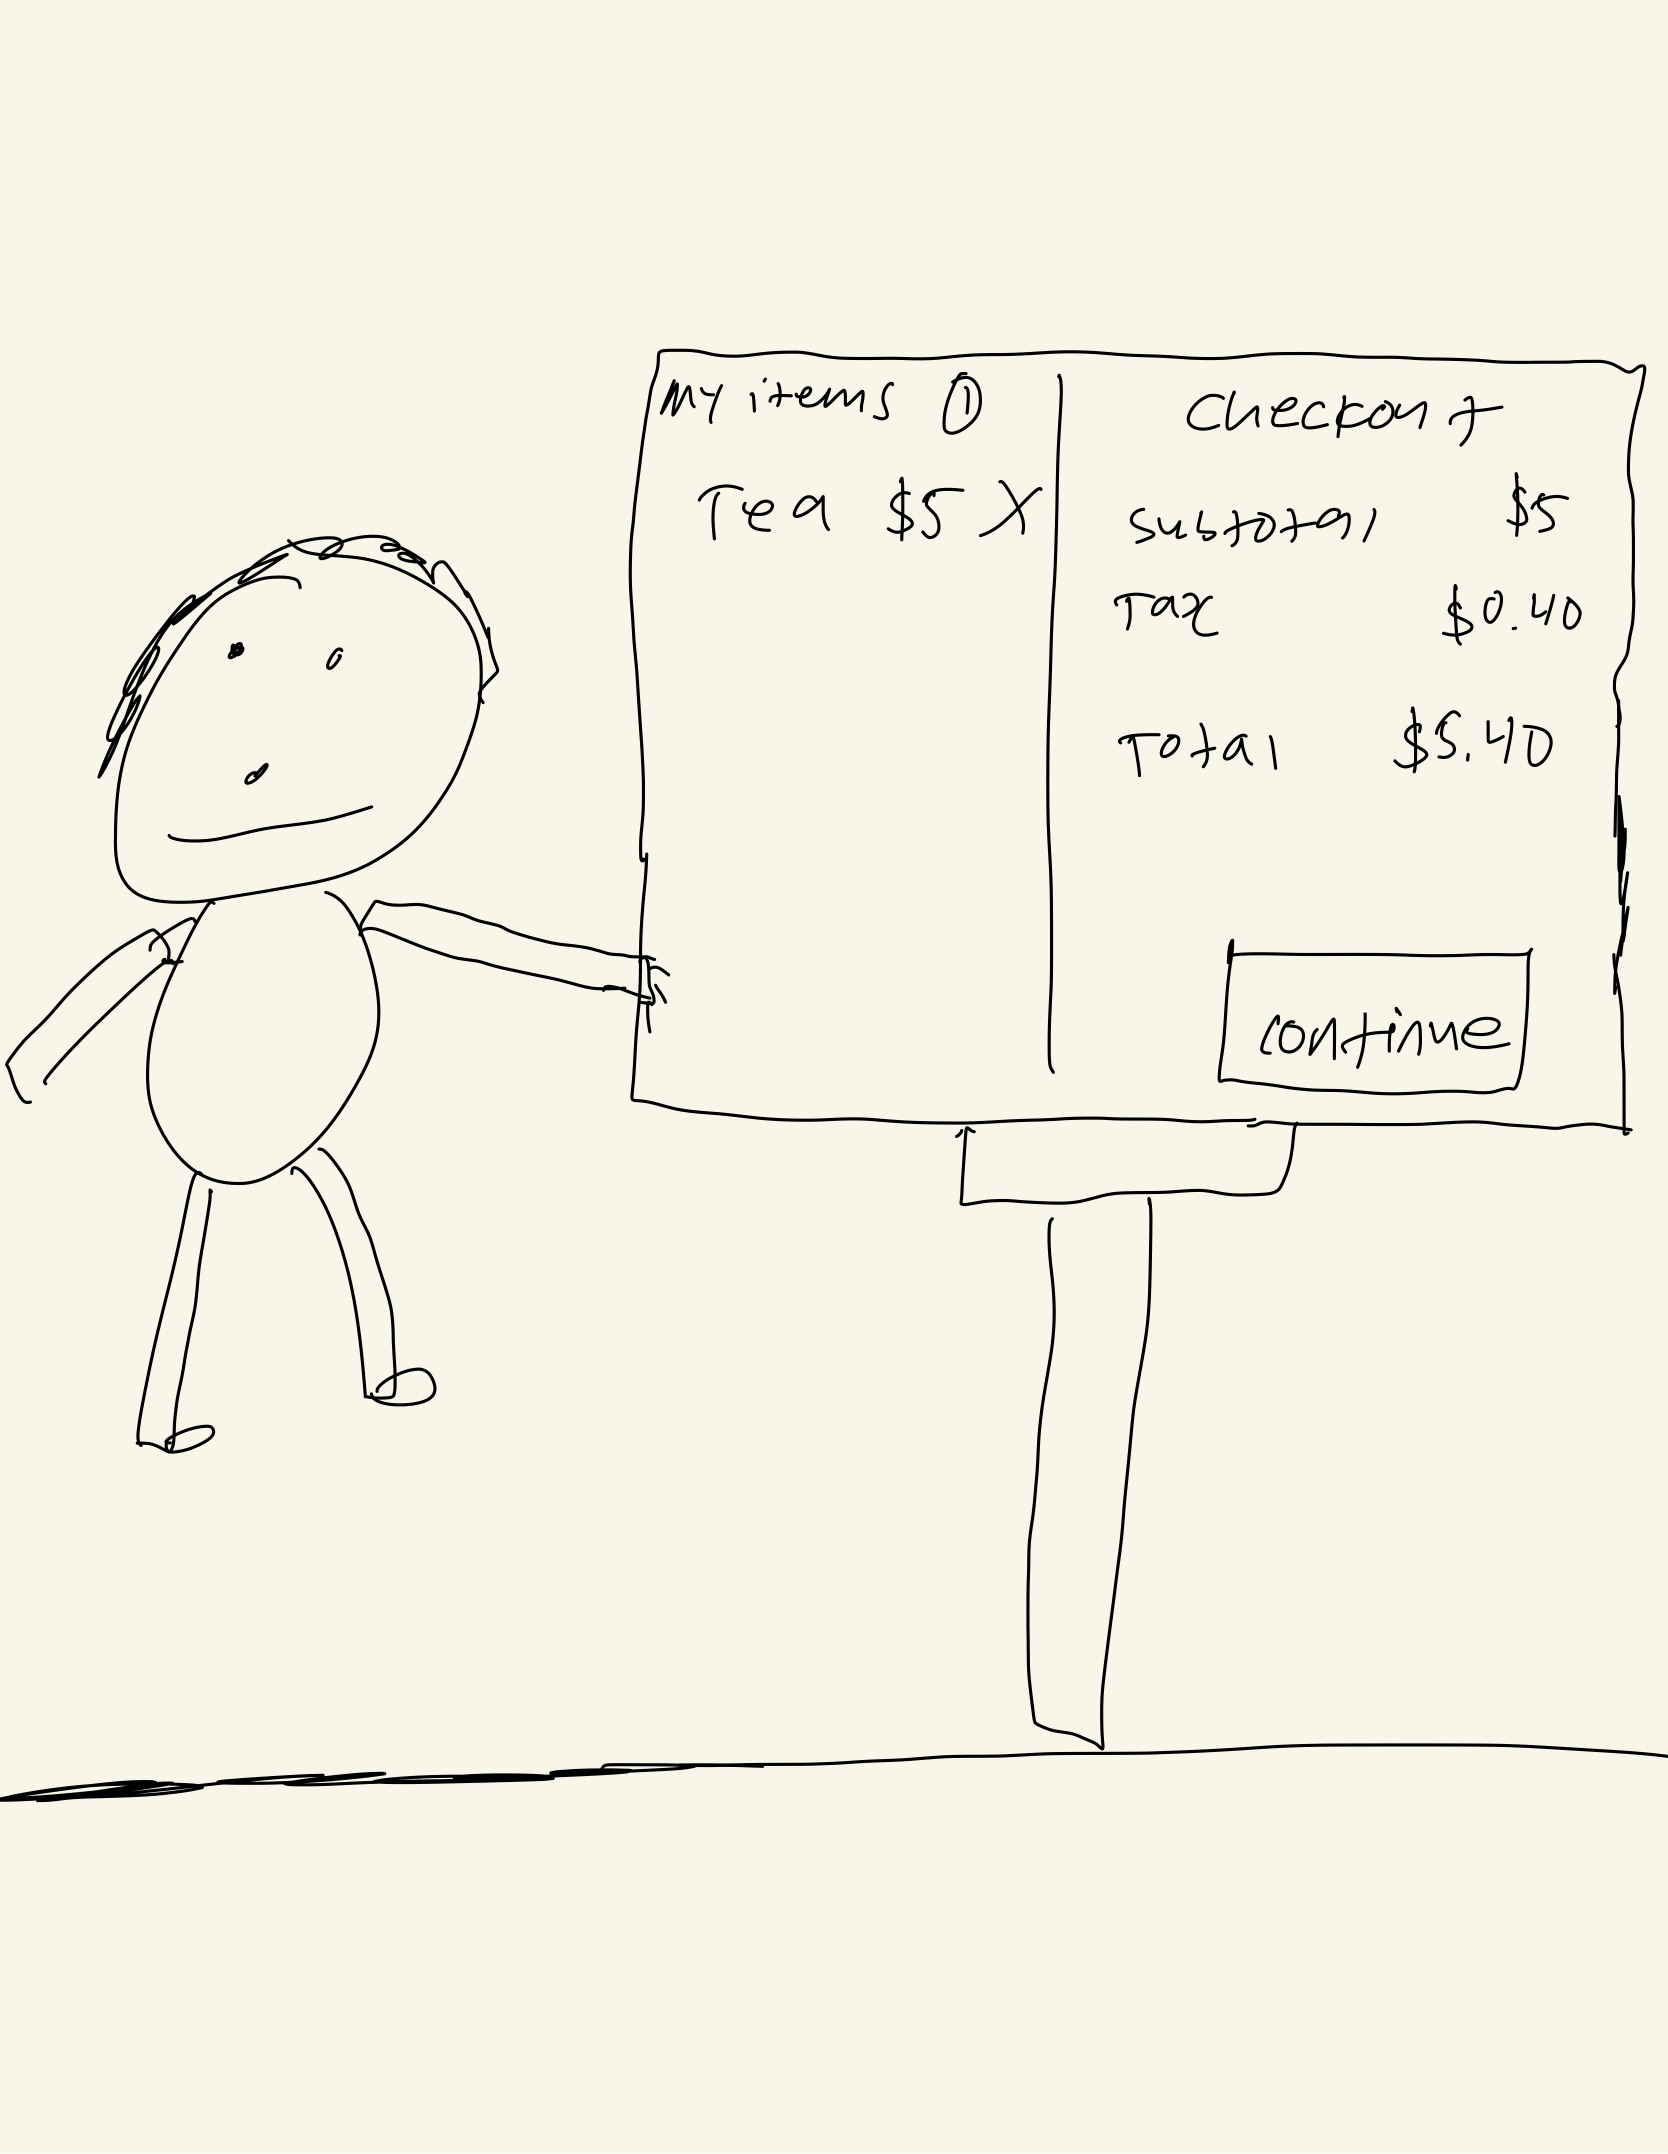 My items 1
Tea $5 X
Checkout
Subtotal $5
Tax $0.40
Total $5.40
continue